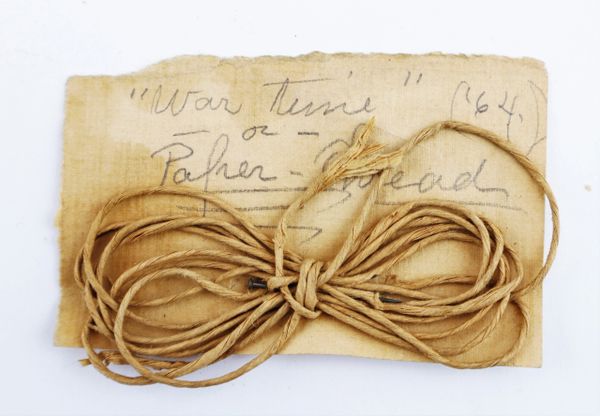 "War time" ('64.)
— or —
Paper-Thread